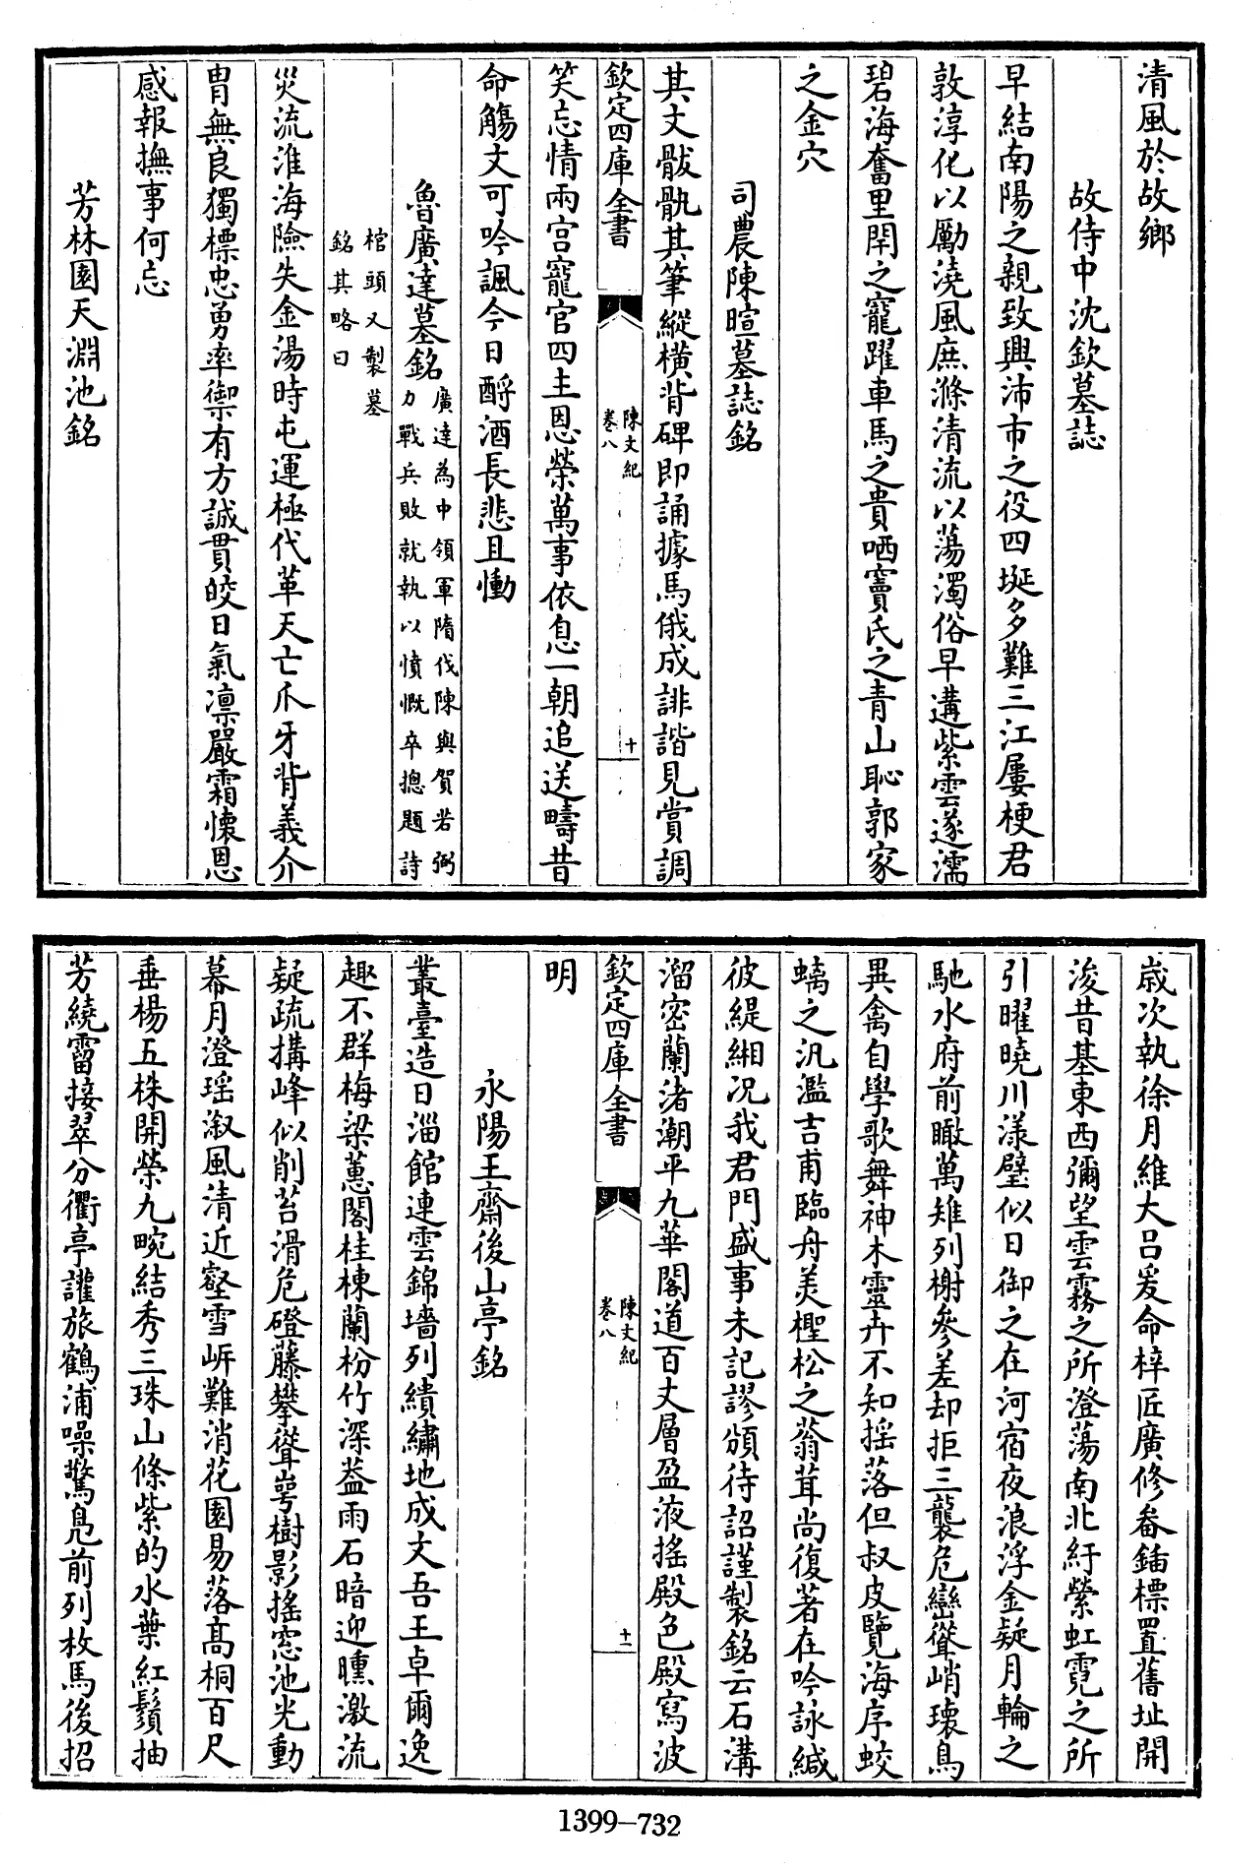 清風於故鄉
故侍中沈欽墓誌
早結南陽之親致興沛市之役四埏多難三江屢梗君
敦淳化以勵澆風庶滌清流以蕩濁俗早遘紫雲遂濡
碧海奮里閈之寵躍車馬之貴哂竇氏之青山恥郭家
之金穴
司農陳暄墓誌銘
其文骳骫其筆縱橫背碑即誦據馬俄成誹諧見賞調
欽定四庫全書
陳文紀
卷八
十
笑忘情兩宮寵官四主恩榮萬事依息一朝追送疇昔
命觴文可吟諷今日酹酒長悲且慟
魯廣達墓銘
廣達為中領軍隋伐陳與賀若弼
力戰兵敗就執以憤慨卒摠題詩
棺頭又製墓
銘其略曰
災流淮海險失金湯時屯運極代革天亡爪牙背義介
胄無良獨標忠勇率禦有方誠貫皎日氣凛嚴霜懷恩
感報撫事何忘
芳林園天淵池銘
歲次執徐月維大呂爰命梓匠廣修畚鍤標置舊址開
浚昔基東西彌望雲霧之所澄蕩南北紆縈虹霓之所
引曜曉川漾璧似日御之在河宿夜浪浮金疑月輪之
馳水府前瞰萬雉列榭參差却拒三襲危巒聳峭環鳥
異禽自學歌舞神木靈卉不知揺落但叔皮覽海序蛟
螭之汎濫吉甫臨舟美檉松之蓊茸尚復著在吟詠緘
彼緹緗况我君門盛事未記謬頒待詔謹製銘云石溝
溜密蘭渚潮平九華閣道百丈層盈液搖殿色殿寫波
欽定四庫全書
陳文紀
卷八
十一
明
永陽王齋後山亭銘
叢臺造日淄館連雲錦墻列繢繡地成文吾王卓爾逸
趣不群梅梁蕙閣桂棟蘭枌竹深葢雨石暗迎曛激流
疑疏搆峰似削苔滑危磴藤攀聳崿樹影搖窓池光動
幕月澄瑶溆風清近壑雪岍難消花園易落高桐百尺
垂楊五株開榮九畹結秀三珠山條紫的水葉紅鬚抽
芳繞霤接翠分衢亭讙旅鶴浦噪驚鳧前列枚馬後招
1399—732